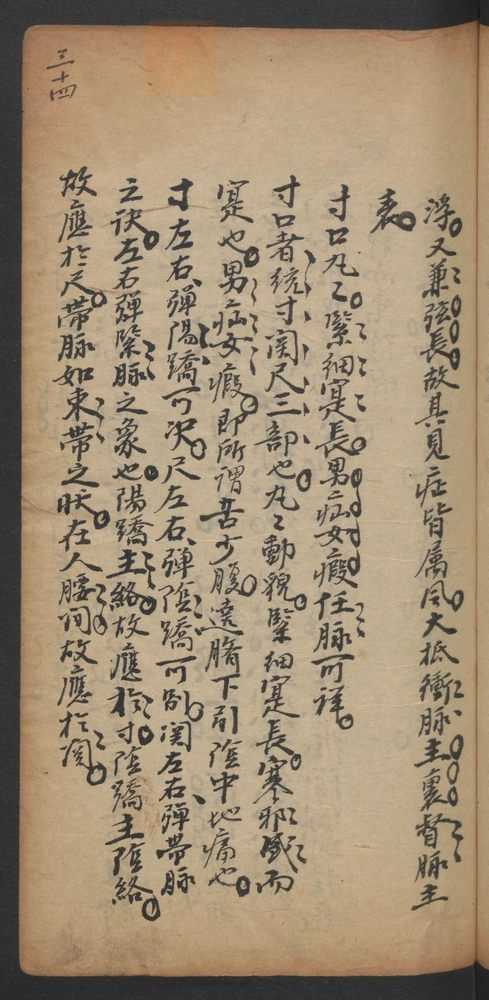 浮。又兼弦長。故其見症皆屬風。大抵衝脉主裏督脉主
表。
寸口丸々。緊細寔長。男疝女瘕。任脉可詳。
寸口者統寸関尺三部也。丸々動貌。緊細寔長。寒邪盛而
寔也。男疝女瘕。即所謂苦少腹遶臍下引陰中地痛也。
寸左右弾陽蹻可决。尺左右弾陰蹻可別。関左右弾帯脉
之訣。左右弾緊脉之象也。陽蹻主絡。故應於寸。陰蹻主陰絡。
故應於尺。帯脉如束帯之状。在人腰间。故應於関。
三十四